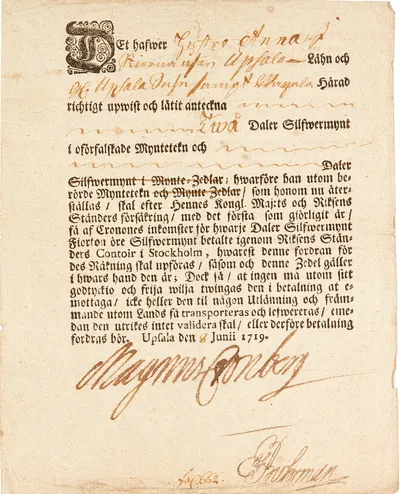 DEt hafwer Hustro Anna
Upsála Lähn och
Upsala Härad
richtigt upwist och låtit anteckna
Twå Daler Silfwermynt
i oförfalskade Myntetekn och
Daler
Silfwermynt i Mynte-Zedlar; hwarföre han utom be-
rörde Myntetekn och Mynte Zedlar/ som honom nu åter-
ställas/ skal efter Hennes Kongl. Maj:ts och Riksens
Ständers försäkring/ med det första som giörligit är/
få af Cronones inkomster för hwarje Daler Silfwermynt
Fiorton öre Silfwermynt betalte igenom Riksens Stän-
ders Contoir i Stockholm, hwarest denne fordran för
des Räkning skal upföras/ såsom och denne Zedel gäller
i hwars hand den är; Dock så/ at ingen må utom sitt
godtyckio och frija wilja twingas den i betalning at e-
mottaga/ icke heller den til någon Utlänning och främ-
mande utom Lands få transporteras och lefwereras/ eme-
dan den utrikes intet validera skal/ eller derföre betalning
fordras bör. Upsala den 8 Junii 1719.
Magnus Cronberg